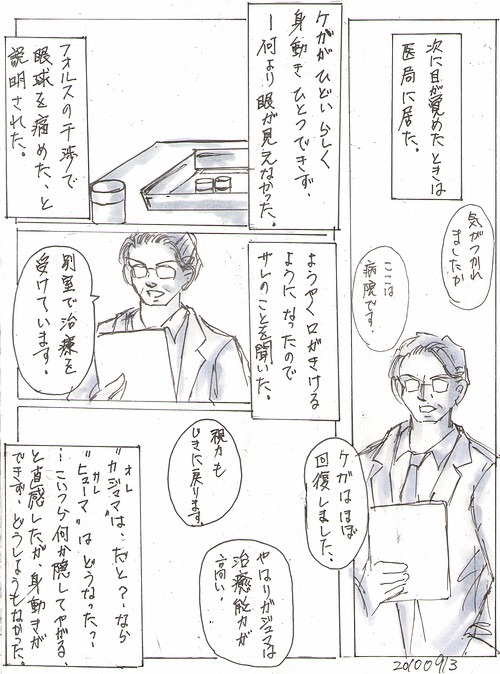 次に目が覚めたときは
医局に居た。
気がつかれ
ましたか
ここは
病院です。
ケガはほぼ
回復しました。
ケガがひどいらしく
身動きひとつできず、
ー何より眼が見えなかった。
フォルスの干渉で
眼球を痛めた、と
説明された。
ようやく口がきける
ようになったので
サレのことを聞いた。
別室で治療を
受けています。
視力も
じきに戻ります。
やはりガジュマは
治癒能力が
高い。
オレ
"ガジュマ"は、だと?-なら
サレ
"ヒューマ"はどうなった?-
…こいつら何か隠してやがる、
と直感したが、身動きが
できず、どうしようもなかった。
20100913